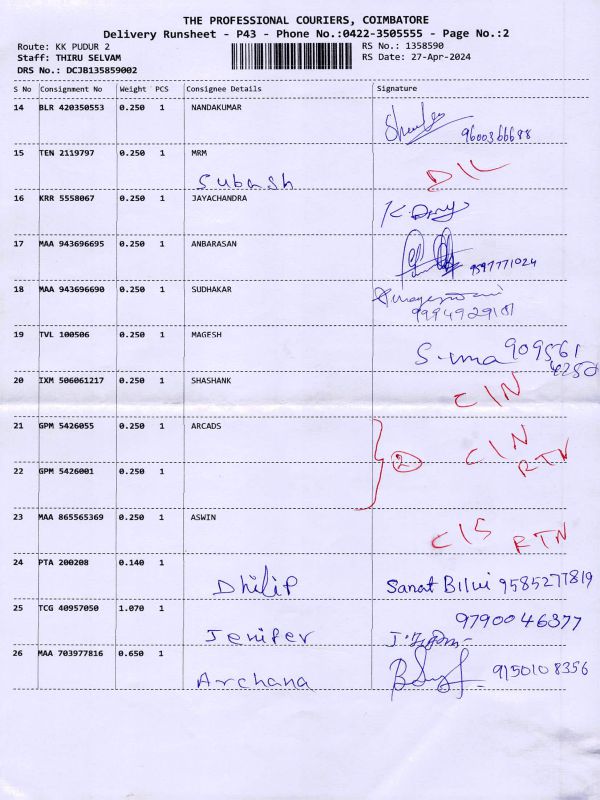 THE PROFESSIONAL COURIERS, COIMBATORE
Delivery Runsheet - P43 - Phone No.:0422-3505555 - Page No.:2
Route: KK PUDUR 2 RS No.: 1358590
Staff: THIRU SELVAM RS Date: 27-Apr-2024
DRS No.: DCJB135859002
S No Consignment No Weight PCS Consignee Details Signature
14 BLR 420350553 0.250 1 NANDAKUMAR
9600366688
15 TEN 2119797 0.250 1 MRM
Subash
16 KRR 5558067 0.250 1 JAYACHANDRA
17 MAA 943696695 0.250 1 ANBARASAN
9597771024
18 MAA 943696690 0.250 1 SUDHAKAR
9994929181
19 TVL 100506 0.250 1 MAGESH
S-uma 909561
4250
20 IXM 506061217 0.250 1 SHASHANK
CIN
21 GPM 5426055 0.250 1 ARCADS
2 CIN
RTN
22 GPM 5426001 0.250 1
23 MAA 865565369 0.250 1 ASWIN
CIS RTN
24 PTA 200208 0.140 1
Dhilip Sanat 9585277819
25 TCG 40957050 1.070 1 9790046377
Jenifer
26 MAA 703977816 0.650 1
Archana 9150108356